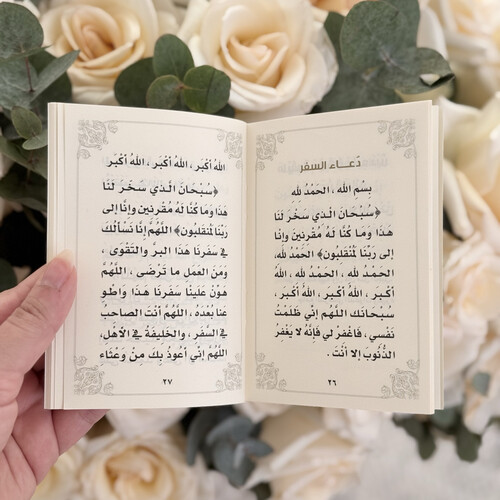 دعـــاء السفر
بِسْمِ اللهِ ، الحَمْدُ للهِ
﴿سُبْحَانَ الَّـذي سَخَّرَ لَنَا
هَذَا وَمَا كُنَّا لَهُ مُقْرِنين وَإنَّا
إلى رَبِّنَا لَمُنْقَلِبُون﴾ الحَمْدُ لله،
الحَمْـدُ لله ، الحَمْدُ لله ، اللهُ
أكْبَر ، اللهُ أكْبَر ، اللهُ أكْبَر،
سبْحَانَكَ اللَّهُم إنِّي ظَلَمْتُ
نَفْسي ، فَاغْفر لي فَإنَّهُ لا يَغْفرُ
الذُّنُوبَ إلا أنْتَ .
٢٦
اللهُ أكْبَر ، اللهُ أكْبَر ، اللهُ أكْبَر
﴿سُبْحَانَ الَّـذي سَخَّرَ لَنَا
هَذَا وَمَا كُنَّا لَهُ مُقْرِنين وَإنَّا إلى
رَبِّنَا لَمُنْقَلِبُون﴾ اللَّهُمَّ إنَّا نَسْألُكَ
في سَفَرِنَا هَذَا البرَّ وَالتَقْوَى ،
وَمِنَ العَمَلِ مَا تَرْضَى ، اللَّهُمَّ
هَوِّنْ عَلَينَا سَفَرنَا هَذَا وَاطْوِ
عنا بُعدَه ، اللَّهُمَّ أنتَ الصاحبُ
في السَّفَرِ ، وَالخَلِيفَةُ في الأهْلِ،
اللَّهُمَّ إنِّي أعُوذُ بِكَ مِنْ وَعْثَاءِ
٢٧